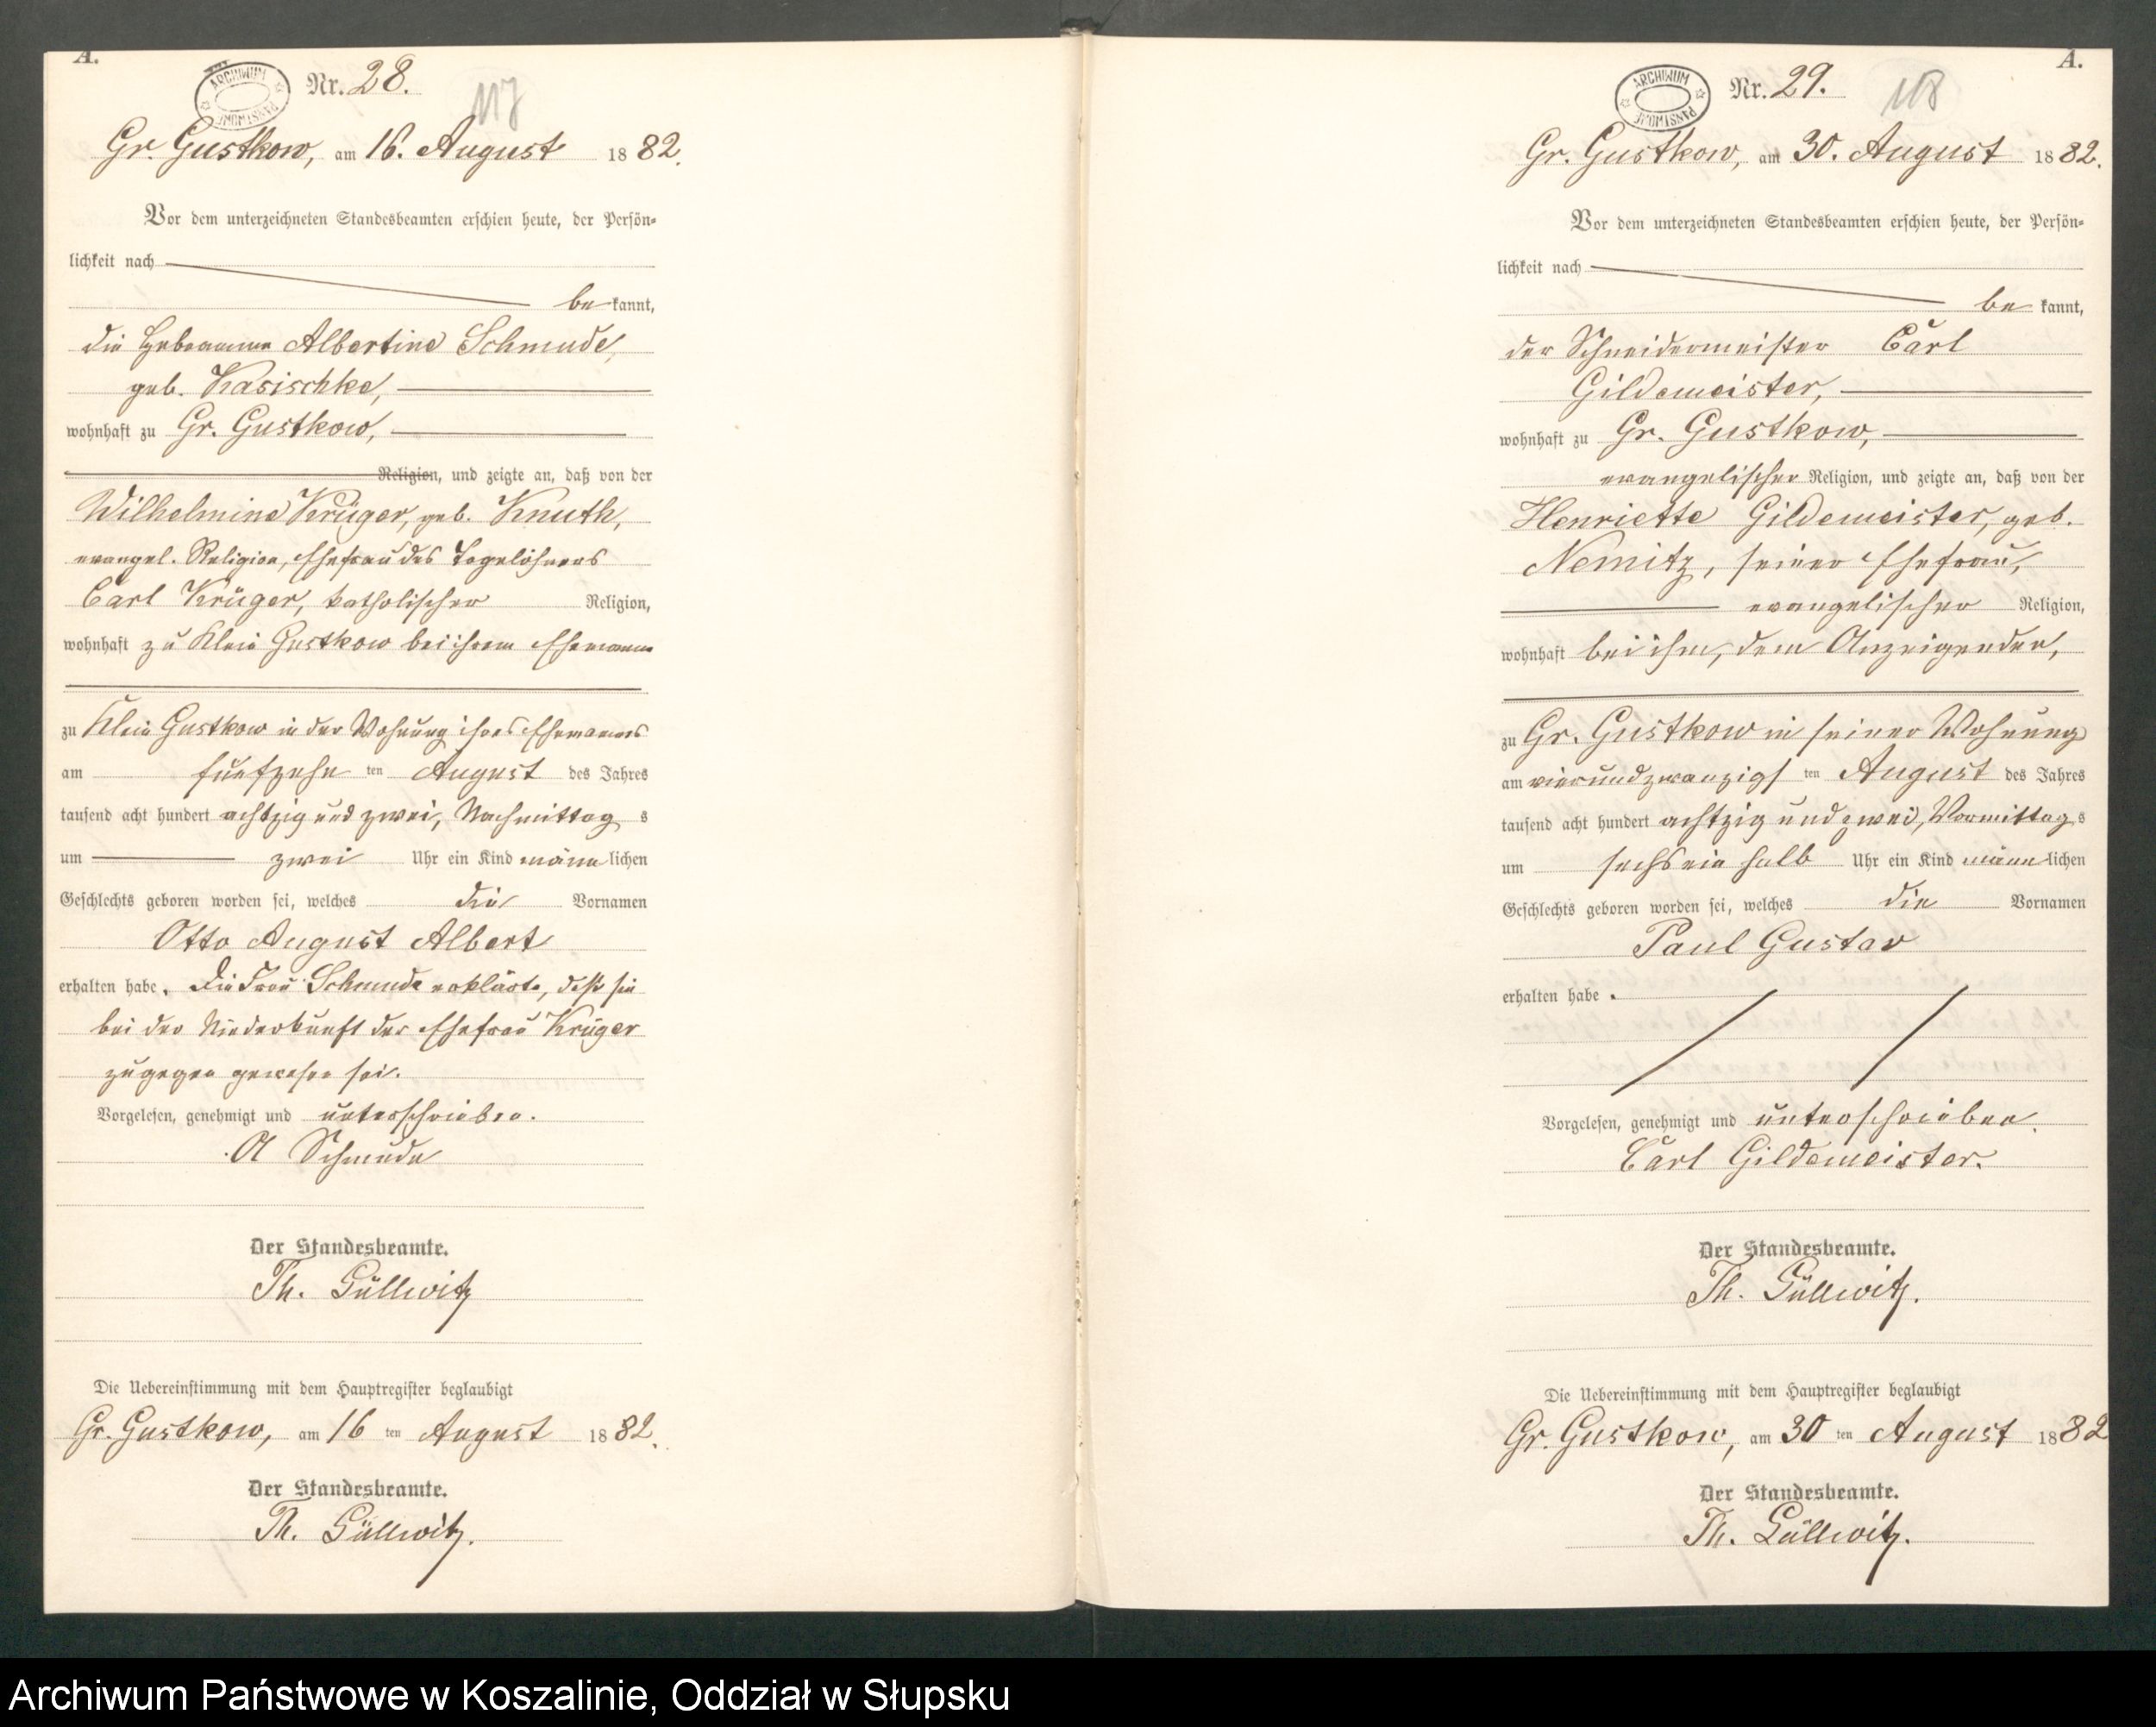 A.
ARCHIWUM PAŃSTWOWE
Nr. 28.
117
Gr. Gustkow, am 16. August 1882.
Vor dem unterzeichneten Standesbeamten erschien heute, der Persön-
lichkeit nach
be kannt,
die Hebeamme Albertine Schmude,
geb. Kasischke,
wohnhaft zu Gr. Gustkow,
Religion, und zeigte an, daß von der
Wilhelmine Krüger, geb. Knuth,
evangel. Religion, Ehefrau des Tagelöhners
Carl Krüger, katholischer Religion,
wohnhaft zu Klein Gustkow bei ihrem Ehemanne
zu Klein Gustkow in der Wohnung ihres Ehemannes
am fünfzehn ten August des Jahres
tausend acht hundert achtzig und zwei, Nachmittag s
um zwei Uhr ein Kind männ lichen
Geschlechts geboren worden sei, welches die Vornamen
Otto August Albert
erhalten habe. Die Frau Schmude erklärte, daß sie
bei der Niederkunft der Ehefrau Krüger
zugegen gewesen sei.
Vorgelesen, genehmigt und unterschrieben.
A Schmude
Der Standesbeamte.
Th. Güllwitz
Die Uebereinstimmung mit dem Hauptregister beglaubigt
Gr. Gustkow, am 16 ten August 1882.
Der Standesbeamte.
Th. Güllwitz.
A.
ARCHIWUM PAŃSTWOWE
Nr. 29.
118
Gr. Gustkow, am 30. August 1882.
Vor dem unterzeichneten Standesbeamten erschien heute, der Persön-
lichkeit nach
be kannt,
der Schneidermeister Carl
Gildemeister,
wohnhaft zu Gr. Gustkow,
evangelischer Religion, und zeigte an, daß von der
Henriette Gildemeister, geb.
Nemitz, seiner Ehefrau,
evangelischer Religion,
wohnhaft bei ihm, dem Anzeigenden,
zu Gr. Gustkow in seiner Wohnung
am vierundzwanzigs ten August des Jahres
tausend acht hundert achtzig und zwei, Vormittag s
um sechs ein halb Uhr ein Kind männ lichen
Geschlechts geboren worden sei, welches die Vornamen
Paul Gustav
erhalten habe.
Vorgelesen, genehmigt und unterschrieben.
Carl Gildemeister.
Der Standesbeamte.
Th. Güllwitz.
Die Uebereinstimmung mit dem Hauptregister beglaubigt
Gr. Gustkow, am 30 ten August 1882
Der Standesbeamte.
Th. Güllwitz.
Archiwum Państwowe w Koszalinie, Oddział w Słupsku